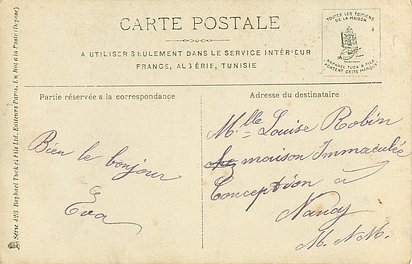 CARTE POSTALE
A UTILISER SEULEMENT DANS LE SERVICE INTÉRIEUR
FRANCE, ALGÉRIE, TUNISIE
TOUTES LES ÉDITIONS
DE LA MAISON
RAPHAEL TUCK & FILS
PORTENT CETTE MARQUE
Partie réservée a la correspondance
Adresse du destinataire
Bien le bonjour
Eva
Mlle Louise Robin
maison Immaculée
Conception à
Nancy
M. & M.
Série 483 Raphael Tuck et Fils Ltd. Editeurs Paris